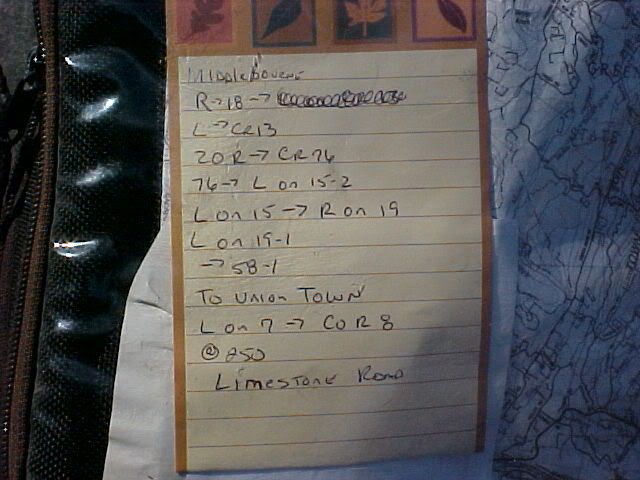 Middlebourne
R→18→
L→CR13
20R→CR76
76→ L on 15-2
L on 15→R on 19
L on 19-1
→58-1
To Union Town
L on 7→ Co R 8
@ 250
Limestone Road